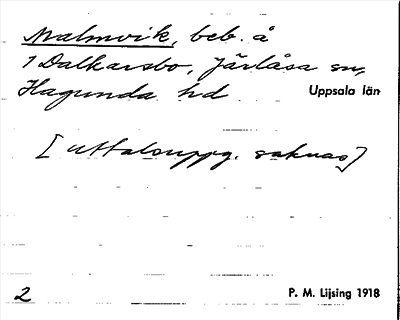 Malmvik, beb. å
1 Dalkarsbo, Järlåsa sn,
Hagunda hd Uppsala län
[uttalsuppg. saknas]
2 P. M. Lijsing 1918